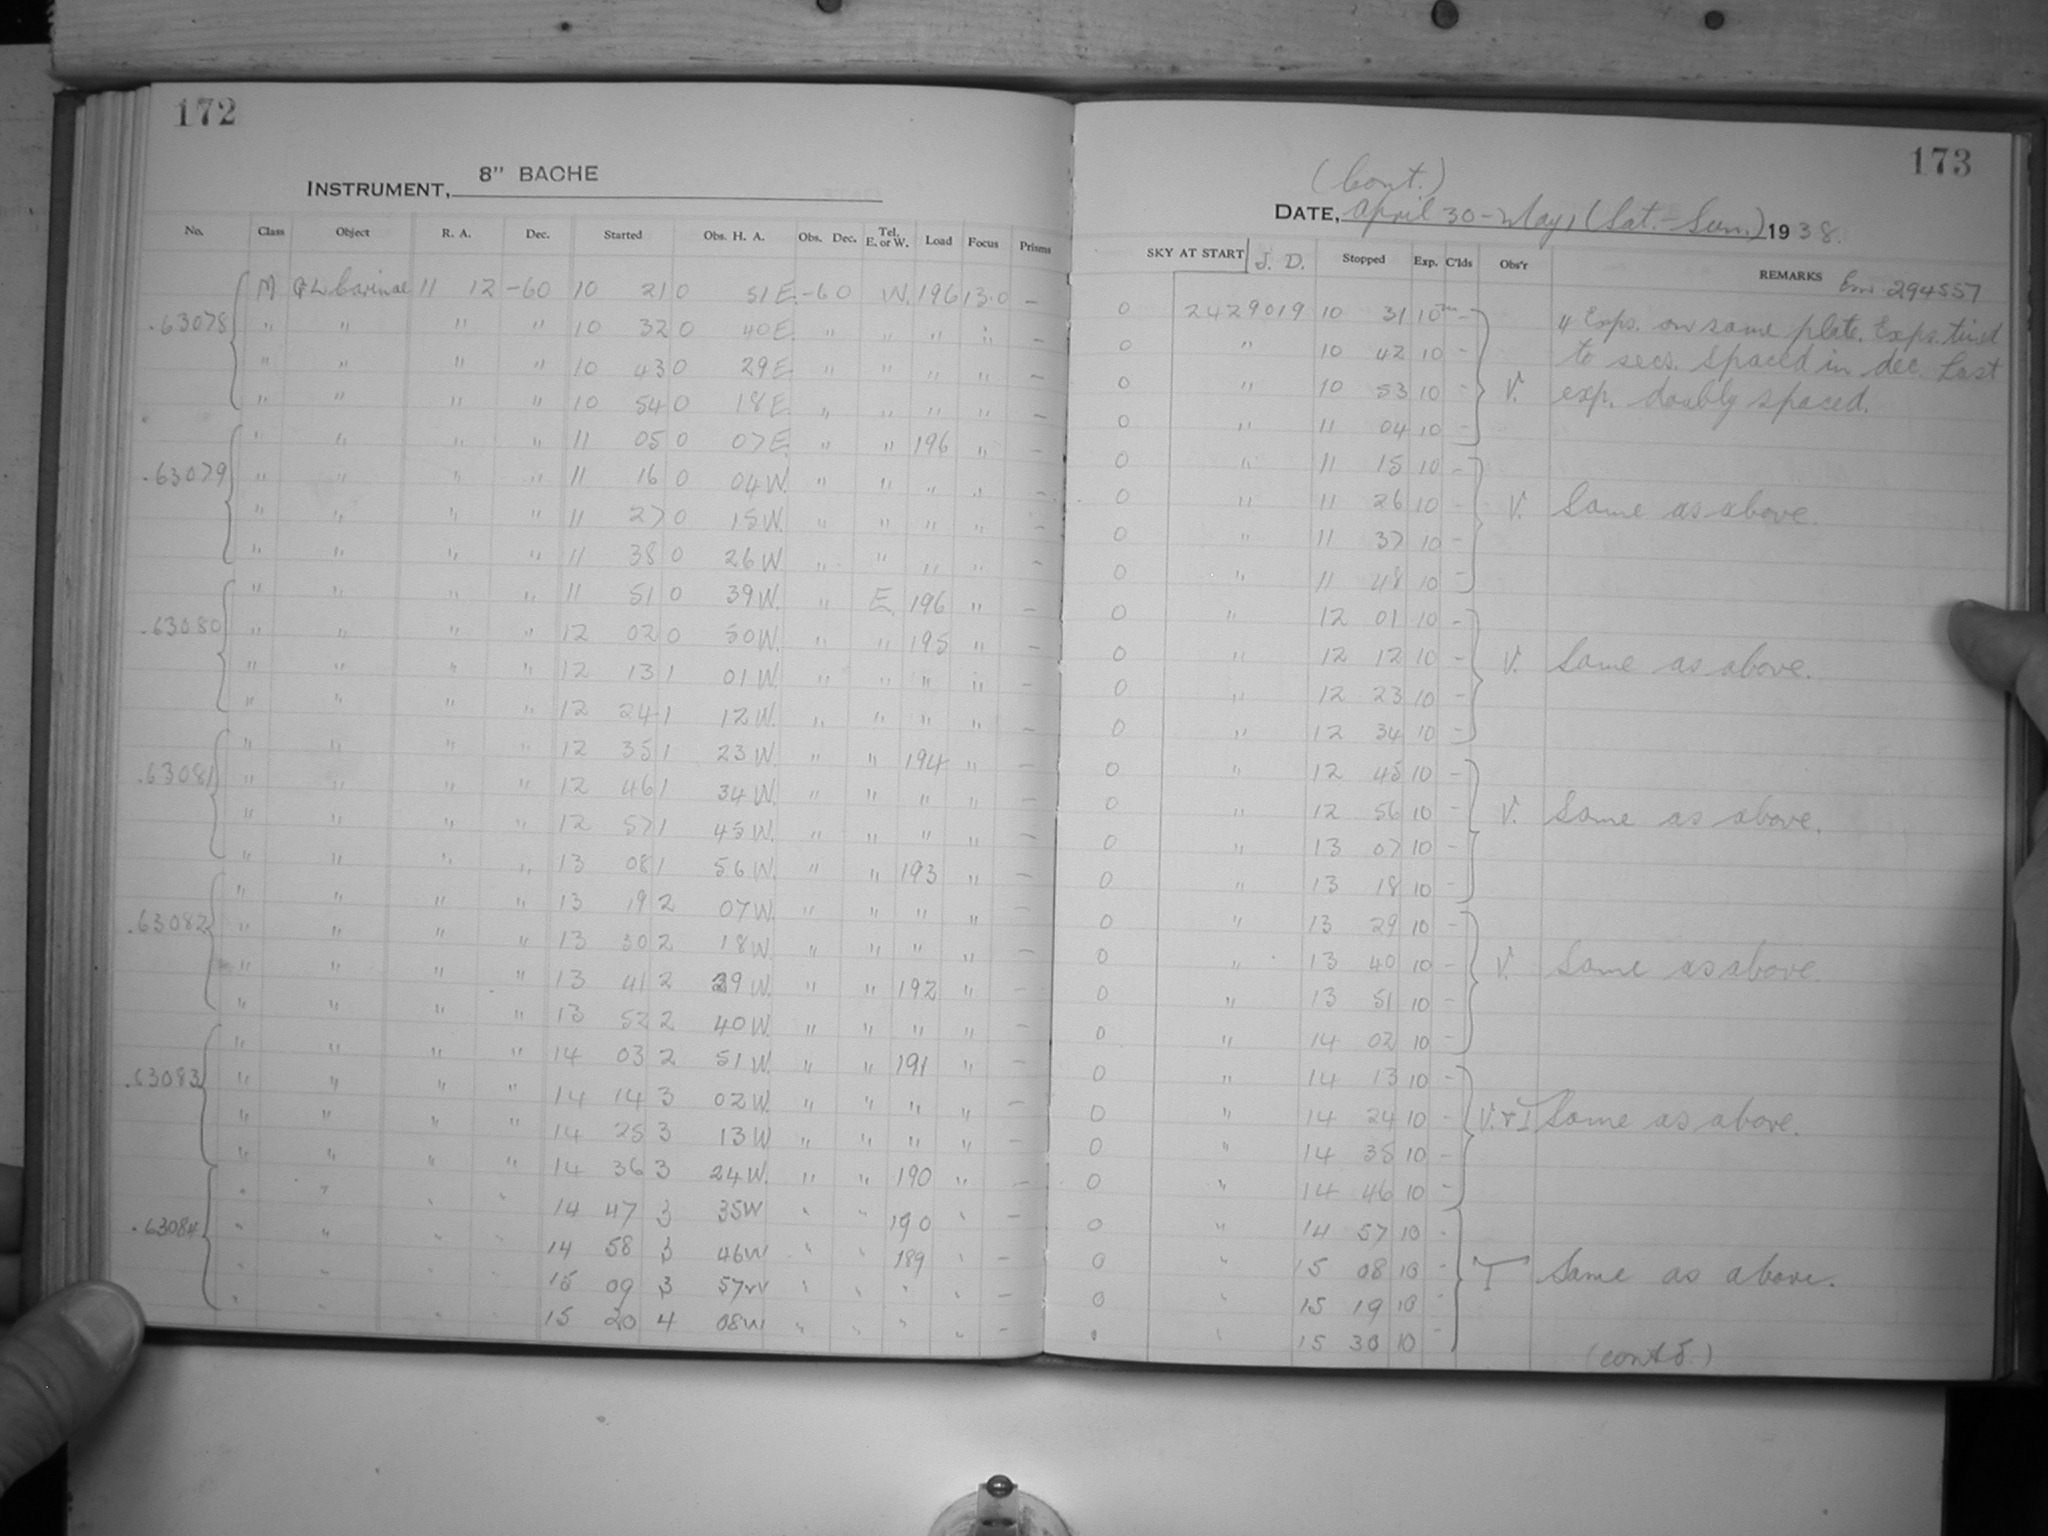 172
INSTRUMENT, 8" BACHE
No. Class Object R. A. Dec. Started Obs. H. A. Obs. Dec. Tel. E. or W. Load Focus Prisms
M GL Carinae 11 12 -60 10 21 0 51 E. -60 W. 196 13.0 -
.63078 " " " " 10 32 0 40 E. " " " " -
" " " " 10 43 0 29 E. " " " " -
" " " " 10 54 0 18 E. " " " " -
" " " " 11 05 0 07 E. " " 196 " -
.63079 " " " " 11 16 0 04 W. " " " " -
" " " " 11 27 0 15 W. " " " " -
" " " " 11 38 0 26 W. " " " " -
" " " " 11 51 0 39 W. " E. 196 " -
.63080 " " " " 12 02 0 50 W. " " 195 " -
" " " " 12 13 1 01 W. " " " " -
" " " " 12 24 1 12 W. " " " " -
" " " " 12 35 1 23 W. " " 194 " -
.63081 " " " " 12 46 1 34 W. " " " " -
" " " " 12 57 1 45 W. " " " " -
" " " " 13 08 1 56 W. " " 193 " -
" " " " 13 19 2 07 W. " " " " -
.63082 " " " " 13 30 2 18 W. " " " " -
" " " " 13 41 2 29 W. " " 192 " -
" " " " 13 52 2 40 W. " " " " -
" " " " 14 03 2 51 W. " " 191 " -
.63083 " " " " 14 14 3 02 W. " " " " -
" " " " 14 25 3 13 W " " " " -
" " " " 14 36 3 24 W. " " 190 " -
" " " " 14 47 3 35 W " " 190 " -
.63084 " " " " 14 58 3 46 W " " 189 " -
" " " " 15 09 3 57 W " " " " -
" " " " 15 20 4 08 W " " " " -
173
(Cont.)
DATE, April 30 - May 1 (Sat. - Sun.) 1938.
SKY AT START J. D. Stopped Exp. C'lds Obs'r REMARKS 294557
0 2429019 10 31 10m - 4 Exps. on same plate. Exps.
0 " 10 42 10 - to secs. spaced in dec. Last
0 " 10 53 10 - V. exp. doubly spaced.
0 " 11 04 10 -
0 " 11 15 10 -
0 " 11 26 10 - V. Same as above.
0 " 11 37 10 -
0 " 11 48 10 -
0 " 12 01 10 -
0 " 12 12 10 - V. Same as above.
0 " 12 23 10 -
0 " 12 34 10 -
0 " 12 45 10 -
0 " 12 56 10 - V. Same as above.
0 " 13 07 10 -
0 " 13 18 10 -
0 " 13 29 10 -
0 " 13 40 10 - V. Same as above
0 " 13 51 10 -
0 " 14 02 10 -
0 " 14 13 10 -
0 " 14 24 10 - V. & T Same as above.
0 " 14 35 10 -
0 " 14 46 10 -
0 " 14 57 10 -
0 " 15 08 10 - T Same as above.
0 " 15 19 10 -
0 " 15 30 10 -
(cont'd.)